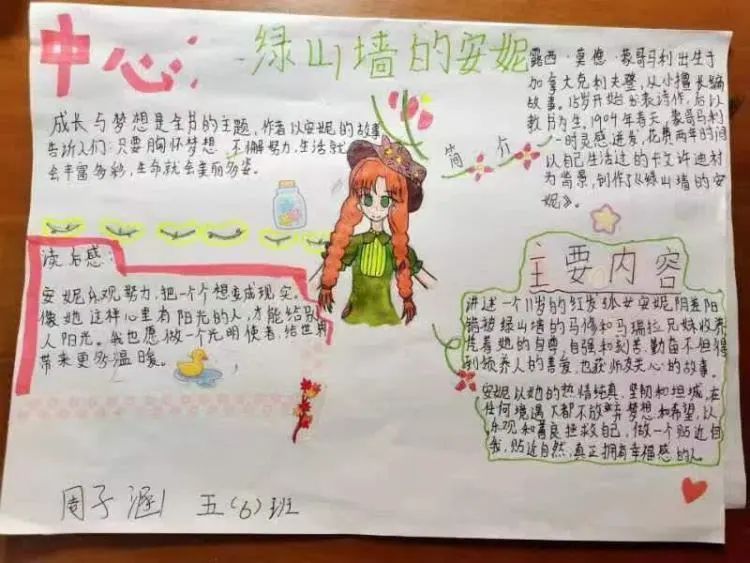 中心:
绿山墙的安妮
成长与梦想是全书的主题,作者以安妮的故事
告诉人们:只要胸怀梦想 不懈努力,生活就
会丰富多彩,生命就会美丽多姿。
简介
露西·莫德·蒙哥马利出生于
加拿大克利夫登,从小擅长编
故事。15岁开始发表诗作,后以
教书为生。1904年春天,蒙哥马利
一时灵感迸发,花费两年时间
以自己生活过的卡文许迪村
为背景,创作了《绿山墙的安
妮》。
读后感:
安妮乐观努力,把一个个想变成现实。
像她这样心里有阳光的人,才能给别
人阳光。我也愿做一个光明使者,给世界
带来更多温暖。
主要内容
讲述一个11岁的红发孤女安妮阴差阳
错被绿山墙的马修和马瑞拉兄妹收养
凭着她的自尊、自强和刻苦、勤奋不但得
到领养人的喜爱,也获师友关心的故事。
安妮以她的热情纯真,坚韧和坦诚,在
任何境遇下都不放弃梦想和希望,以
乐观和善良拯救自己,做一个贴近自
我,贴近自然,真正拥有幸福感的人
周子涵 五(6)班